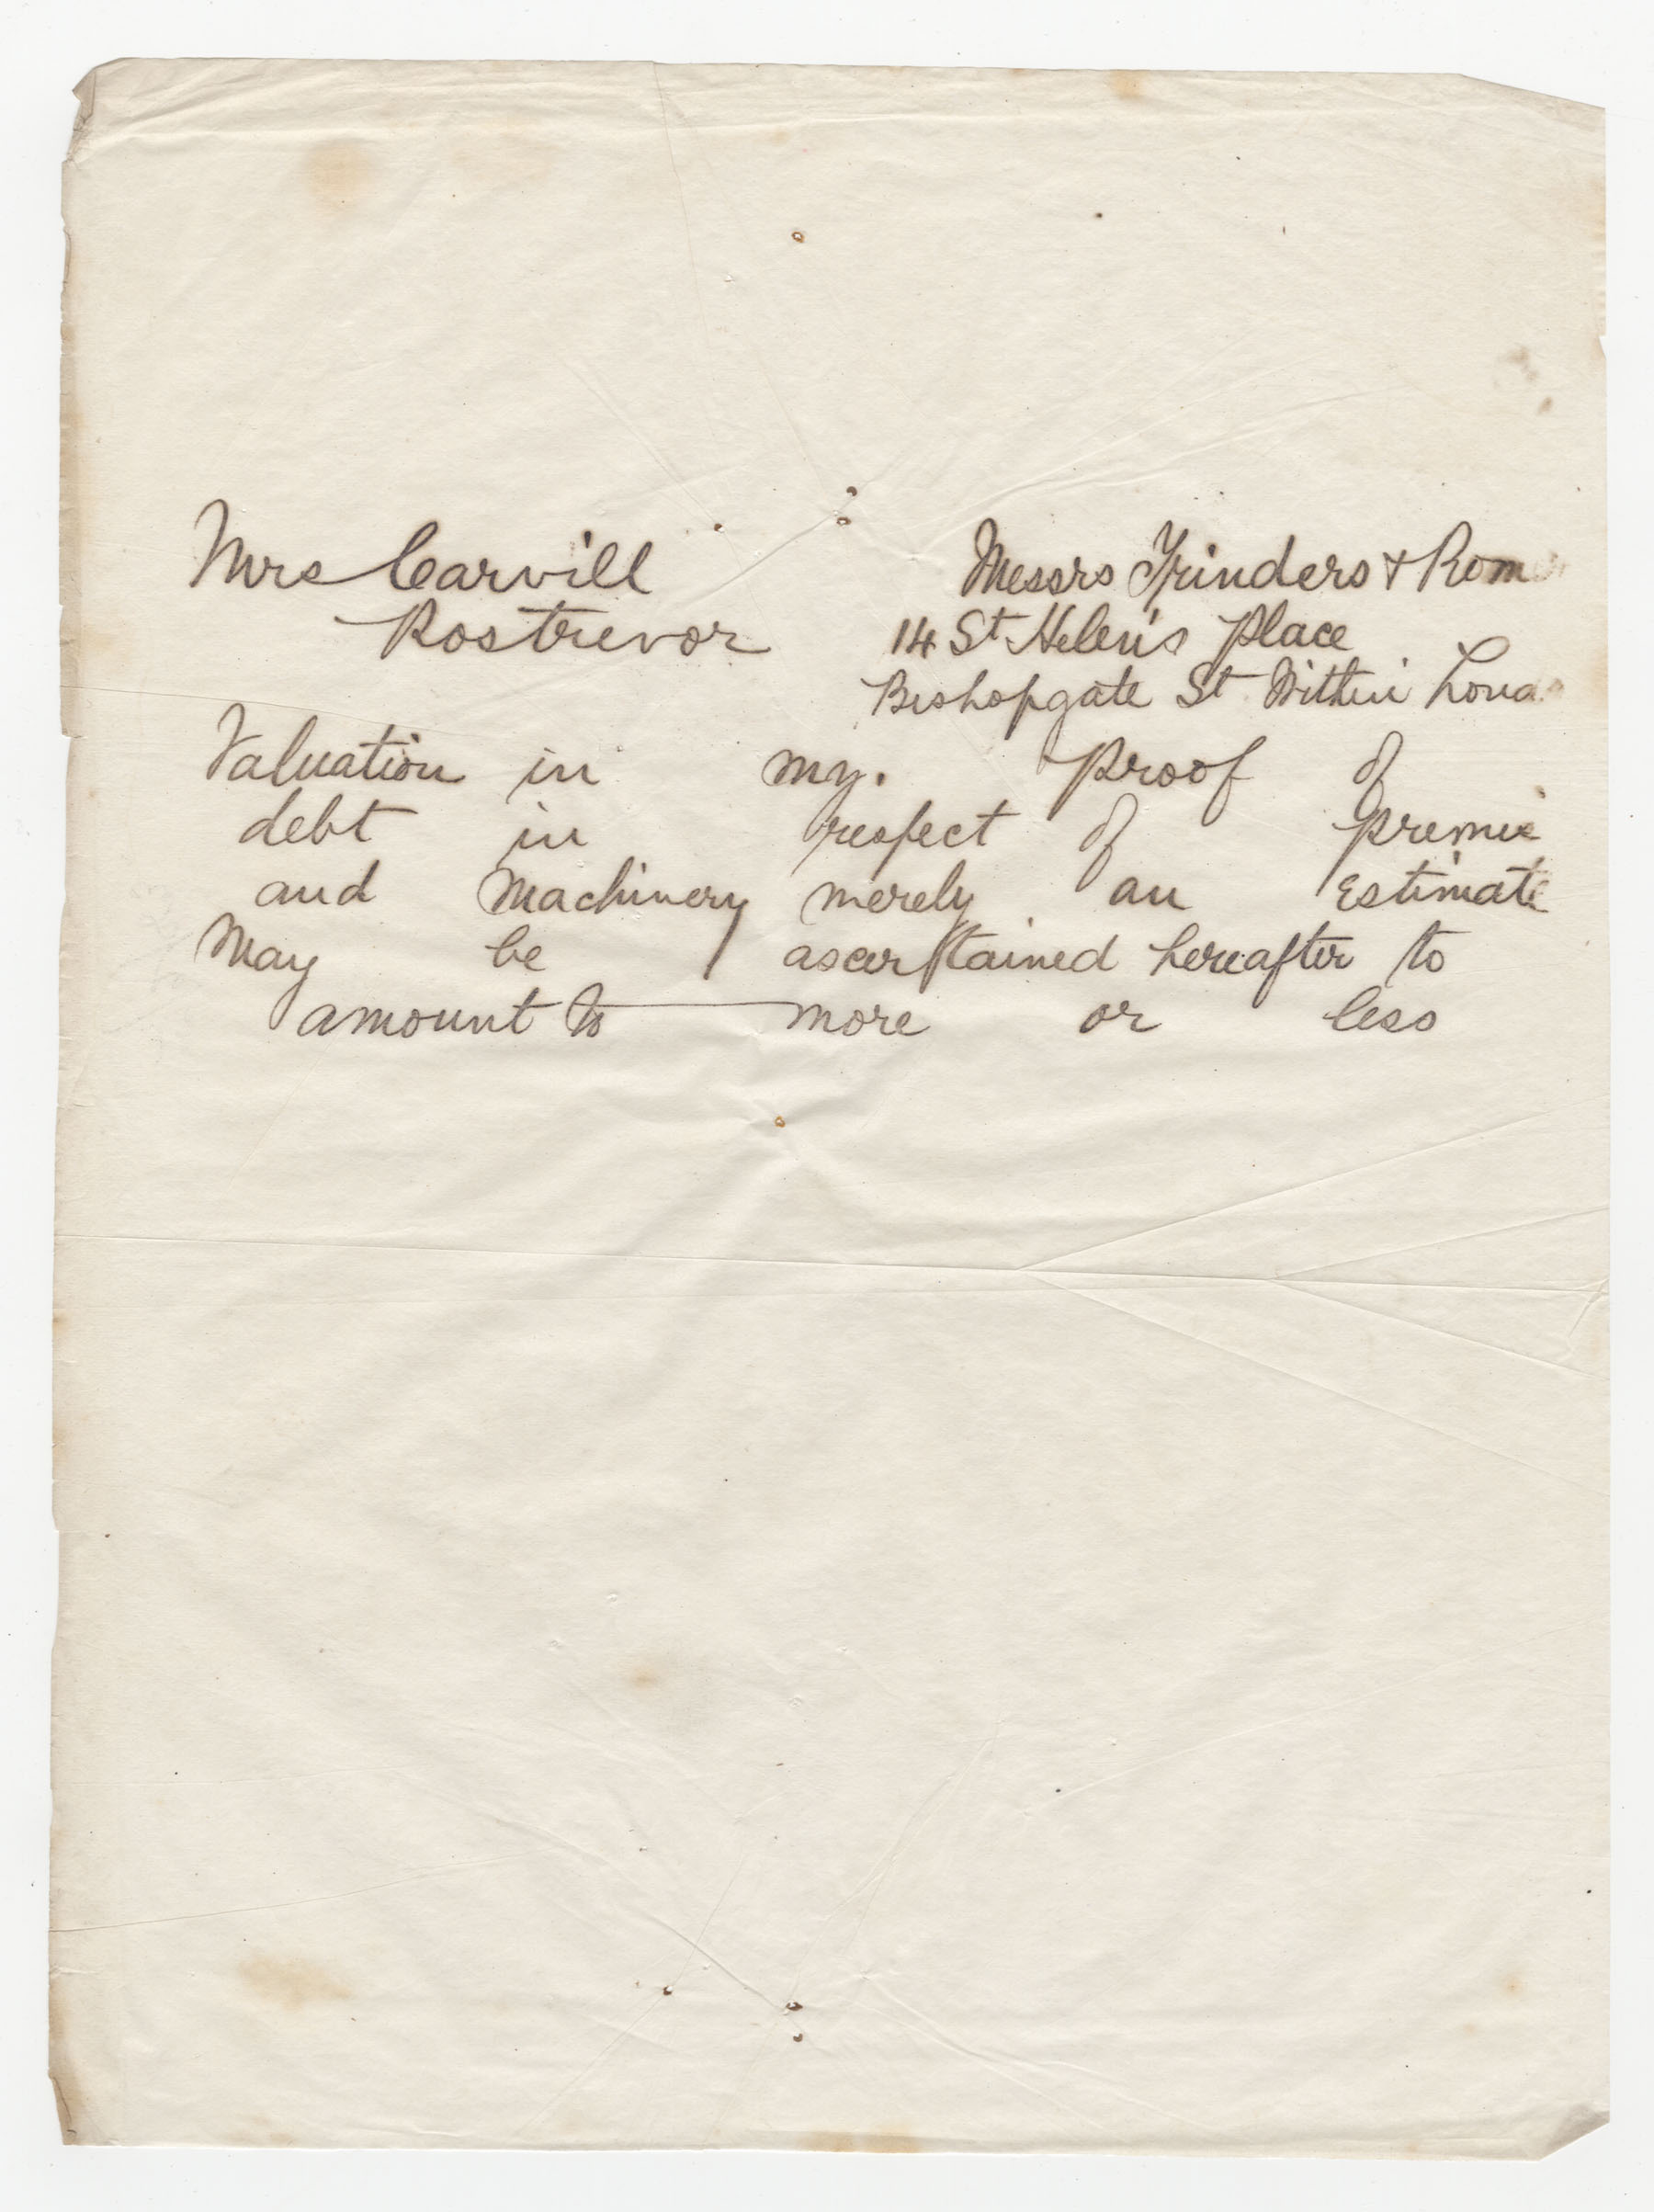 Mrs Carvill
Rostrevor
Messrs Trinders & Rom
14 St Helen's Place
Bishopgate St Within Lond
Valuation in my. proof of
debt in respect of premis
and Machinery merely an Estimate
May be ascertained hereafter to
amount to more or less